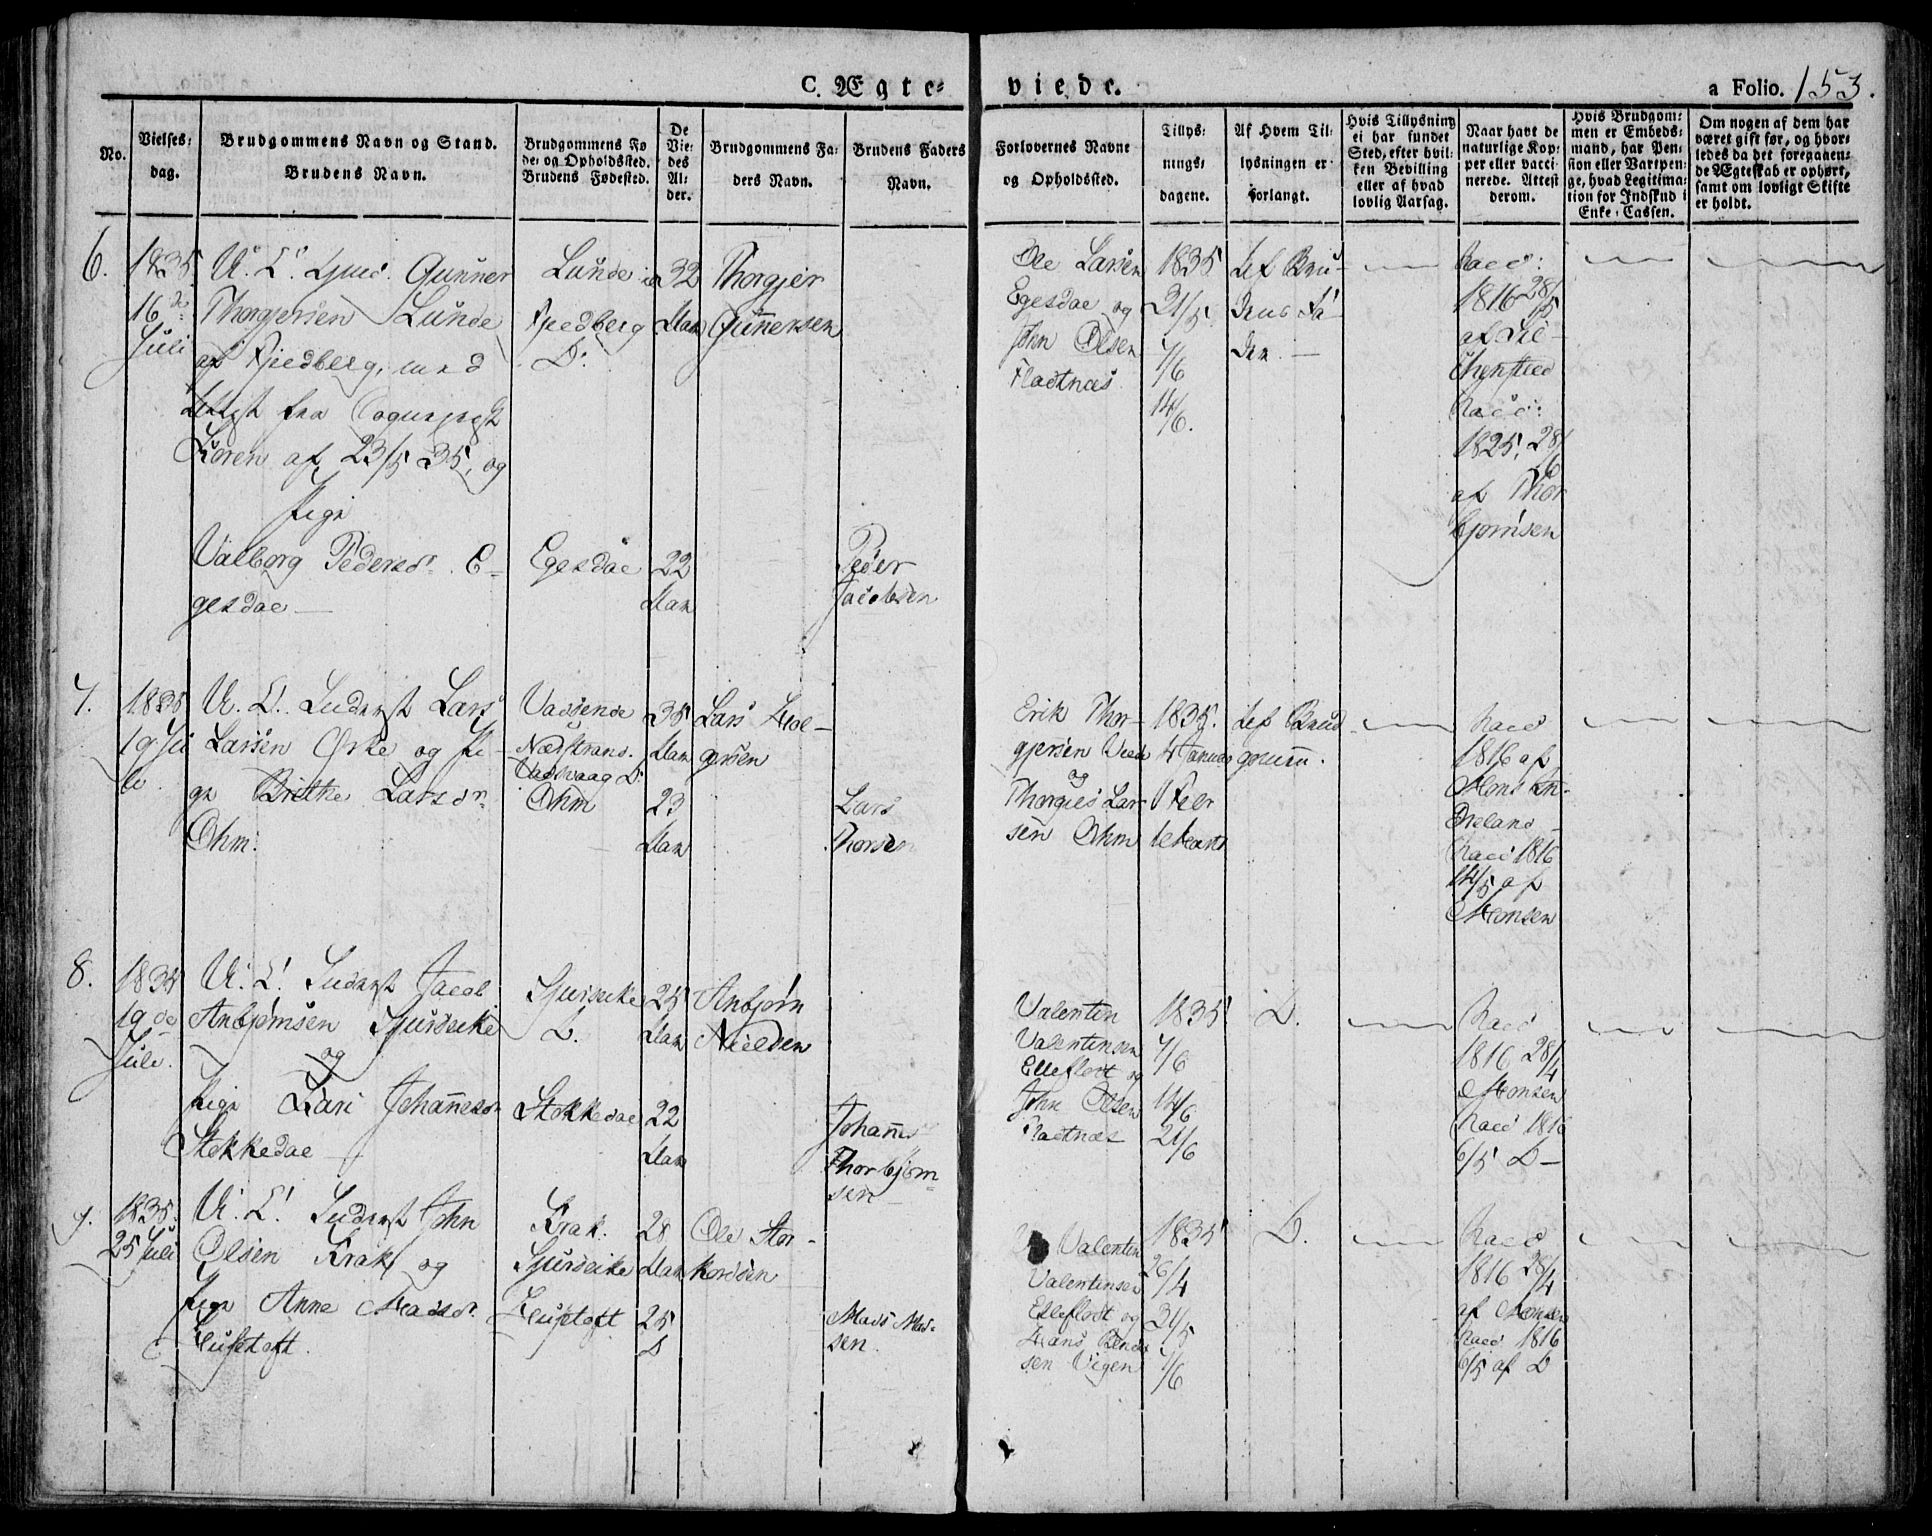 C. Ægte=
viede.
a Folio. 153.
No.
Vielses=
dag.
Brudgommens Navn og Stand.
Brudens Navn.
Brudgommens Fø
de= og Opholdssted.
Brudens Fødested.
De
Vie=
des
Al=
der.
Brudgommens Fa=
ders Navn.
Brudens Faders
Navn.
Forlovernes Navne
og Opholdssted.
Tillys=
nings=
dagene.
Af Hvem Til=
lysningen er
forlangt.
Hvis Tillysning
ei har fundet
Sted, efter hvil=
ken Bevilling
eller af hvad
lovlig Aarsag.
Naar havt de
naturlige Kop=
per eller vacci=
nerede. Attest
derom.
Hvis Brudgom=
men er Embeds=
mand, har Pen=
sion eller Vartpen=
ge, hvad Legitima=
tion for Indskud i
Enke=Cassen.
Om nogen af dem har
været gift før, og hvor=
ledes da det foregaaen=
de Ægteskab er ophørt,
samt om lovligt Skifte
er holdt.
6.
1835
16de
Juli
U. C. Gunner
Thorgjersen Lunde
af Fjeldberg, med
Attest fra
Koren af 23/5 35, og
Pige
Valborg Pedersd. E-
gesdal
Lunde i
Fjeldberg
D.
Egesdal
32
Aar
22
Aar
Thorgjer
Gunnersen
Peder
Jacobsen
Ole Larsen
Egesdal og
John Olsen
Fladtnæs
1835
31/5
7/6
14/6.
Af Bru-
dens Fa-
der.
Vacc:
1816 28/5
af
Vacc:
1825, 28/6
af Thor
bjørnsen
7.
1835
19 Ju
li.
U. C. Lars
Larsen Ørke og Pi-
ge Brithe Larsdr
Ohm.
Vadsende
Nædstrand.
Vadsvaag D.
Ohm
38
Aar
23
Aar
Lars Hol-
gersen
Lars
Thorsen
Erik Thor-
gjersen
og
Thorgies Lar
sen Ohm
1835.
4 Januar
1 Feb
1 Marts
Af Brud
gomm.
Vacc
1816 af
Vacc 1816
14/5 af
Monsen
8.
1835
19 de
Juli.
U. C. Jacob
Anbjørnsen Sjurseike
og
Pige Kari Johannesdr
Stokkedal
Sjurseike
D.
Stokkedal
25
Aar
22
Aar
Anbjørn
Nielsen
Johannes
Thorbjørn-
sen
Valentin
Valentinsen
Elleflodt og
John Olsen
Fladtnæs
1835
7/6
14/6
21/6
D.
Vacc
1816 28/4
Monsen
Vacc 1816
6/5 D
9.
1835.
25 Juli
U. C. John
Olsen Krak og
Pige Anne Madsdr.
Krak.
Sjurseike
28
Aar
25
D
Ole Stor-
korsen
Mads Mad-
sen.
Valentin
Valentinsen
Elleflodt og
Hans
sen Vigen
1835
26/4
31/5
7/6
D.
Vacc
1816 28/4
af Monsen
Vacc 1816
6/5 af D